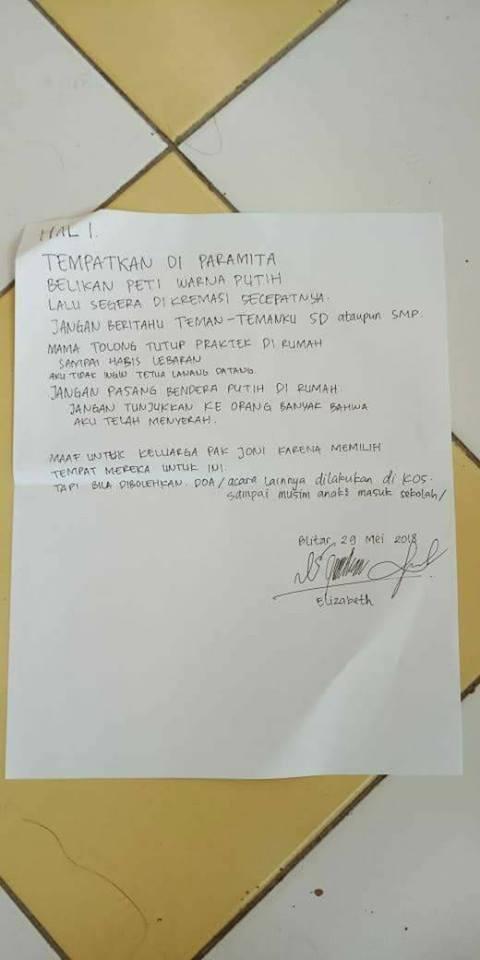 HAL 1.
TEMPATKAN DI PARAMITA
BELIKAN PETI WARNA PUTIH
LALU SEGERA DI KREMASI SECEPATNYA.
JANGAN BERITAHU TEMAN-TEMANKU SD ataupun SMP.
MAMA TOLONG TUTUP PRAKTEK DI RUMAH
SAMPAI HABIS LEBARAN
AKU TIDAK INGIN TETUA LANANG DATANG.
JANGAN PASANG BENDERA PUTIH DI RUMAH
JANGAN TUNJUKKAN KE ORANG BANYAK BAHWA
AKU TELAH MENYERAH.
MAAF UNTUK KELUARGA PAK JONI KARENA MEMILIH
TEMPAT MEREKA UNTUK INI.
TAPI BILA DIBOLEHKAN. DOA/acara lainnya dilakukan di KOS.
sampai musim anak2 masuk sekolah/
Blitar, 29 Mei 2018
Elizabeth